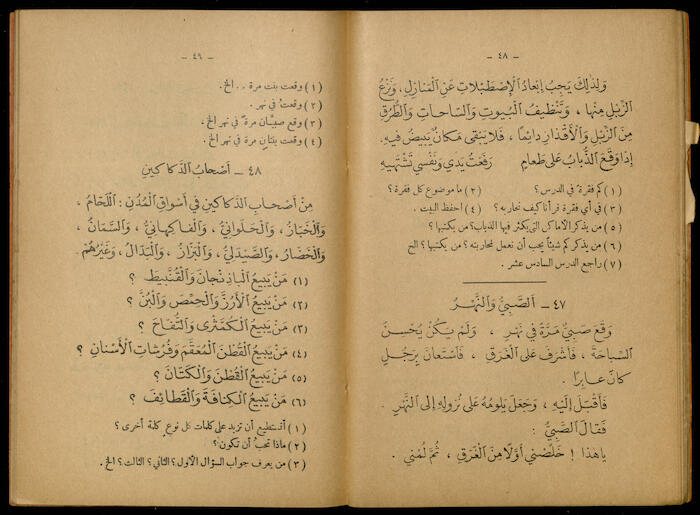 - ٤٨ -
وَلِذٰلِكَ يَجِبُ إِبْعَادُ الْإِصْطَبْلَاتِ عَنِ الْمَنَازِلِ، وَنَزْعُ
الزِّبْلِ مِنْهَا، وَتَنْظِيفُ الْبُيُوتِ وَالسَّاحَاتِ وَالطُّرُقِ
مِنَ الزِّبْلِ وَالْأَقْذَارِ دَائِمًا، فَلَا يَبْقَى مَكَانٌ يَبِيضُ فِيهِ.
إِذَا وَقَعَ الذُّبَابُ عَلَى طَعَامٍ رَفَعْتُ يَدِي وَنَفْسِي تَشْتَهِيهِ
(١) كم فقرةً في الدرس؟ (٢) ما موضوع كل فقرة؟
(٣) في أي فقرة قرأنا كيف نحاربه؟ (٤) احفظ البيت.
(٥) من يذكر الأماكن التي يكثر فيها الذباب؟ من يكتبها؟
(٦) من يذكر كم شيئًا يجب أن نعمل لمحاربته؟ من يكتبها؟ الخ
(٧) راجع الدرس السادس عشر.
٤٧ - اَلصَّبِيُّ وَالنَّهْرُ
وَقَعَ صَبِيٌّ مَرَّةً فِي نَهْرٍ، وَلَمْ يَكُنْ يُحْسِنُ
السِّبَاحَةَ، فَأَشْرَفَ عَلَى الْغَرَقِ، فَاسْتَعَانَ بِرَجُلٍ
كَانَ عَابِرًا.
فَأَقْبَلَ إِلَيْهِ، وَجَعَلَ يَلُومُهُ عَلَى نُزُولِهِ إِلَى النَّهْرِ.
فَقَالَ الصَّبِيُّ:
يَا هٰذَا! خَلِّصْنِي أَوَّلًا مِنَ الْغَرَقِ، ثُمَّ لُمْنِي.
- ٤٩ -
(١) وقعت بنت مرة .. الخ.
(٢) وقعتُ في نهر.
(٣) وقع صبيَّان مرة في نهر الخ.
(٤) وقعت بنتان مرة في نهر الخ.
٤٨ - أَصْحَابُ الدَّكَاكِينِ
مِنْ أَصْحَابِ الدَّكَاكِينِ فِي أَسْوَاقِ الْمُدُنِ: اَللَّحَّامُ،
وَالْخَبَّازُ، وَالْحَلْوَانِيُّ، وَالْفَاكِهَانِيُّ، وَالسَّمَّانُ،
وَالْخَضَّارُ، وَالصَّيْدَلِيُّ، وَالْبَزَّازُ، وَالْبَدَّالُ، وَغَيْرُهُمْ.
(١) مَنْ يَبِيعُ الْبَاذِنْجَانَ وَالْقُنَّبِيطَ؟
(٢) مَنْ يَبِيعُ الْأَرُزَّ وَالْحِمَّصَ وَالْبُنَّ؟
(٣) مَنْ يَبِيعُ الْكُمَّثْرَى وَالتُّفَّاحَ؟
(٤) مَنْ يَبِيعُ الْقُطْنَ الْمُعَقَّمَ وَفُرْشَاتِ الْأَسْنَانِ؟
(٥) مَنْ يَبِيعُ الْقُطْنَ وَالْكَتَّانَ؟
(٦) مَنْ يَبِيعُ الْكِنَافَةَ وَالْقَطَائِفَ؟
(١) أتستطيع أن تزيد على كلمات كل نوع كلمة أخرى؟
(٢) ماذا تحبُّ أن تكون؟
(٣) من يعرف جواب السؤال الأول؟ الثاني؟ الثالث؟ الخ.